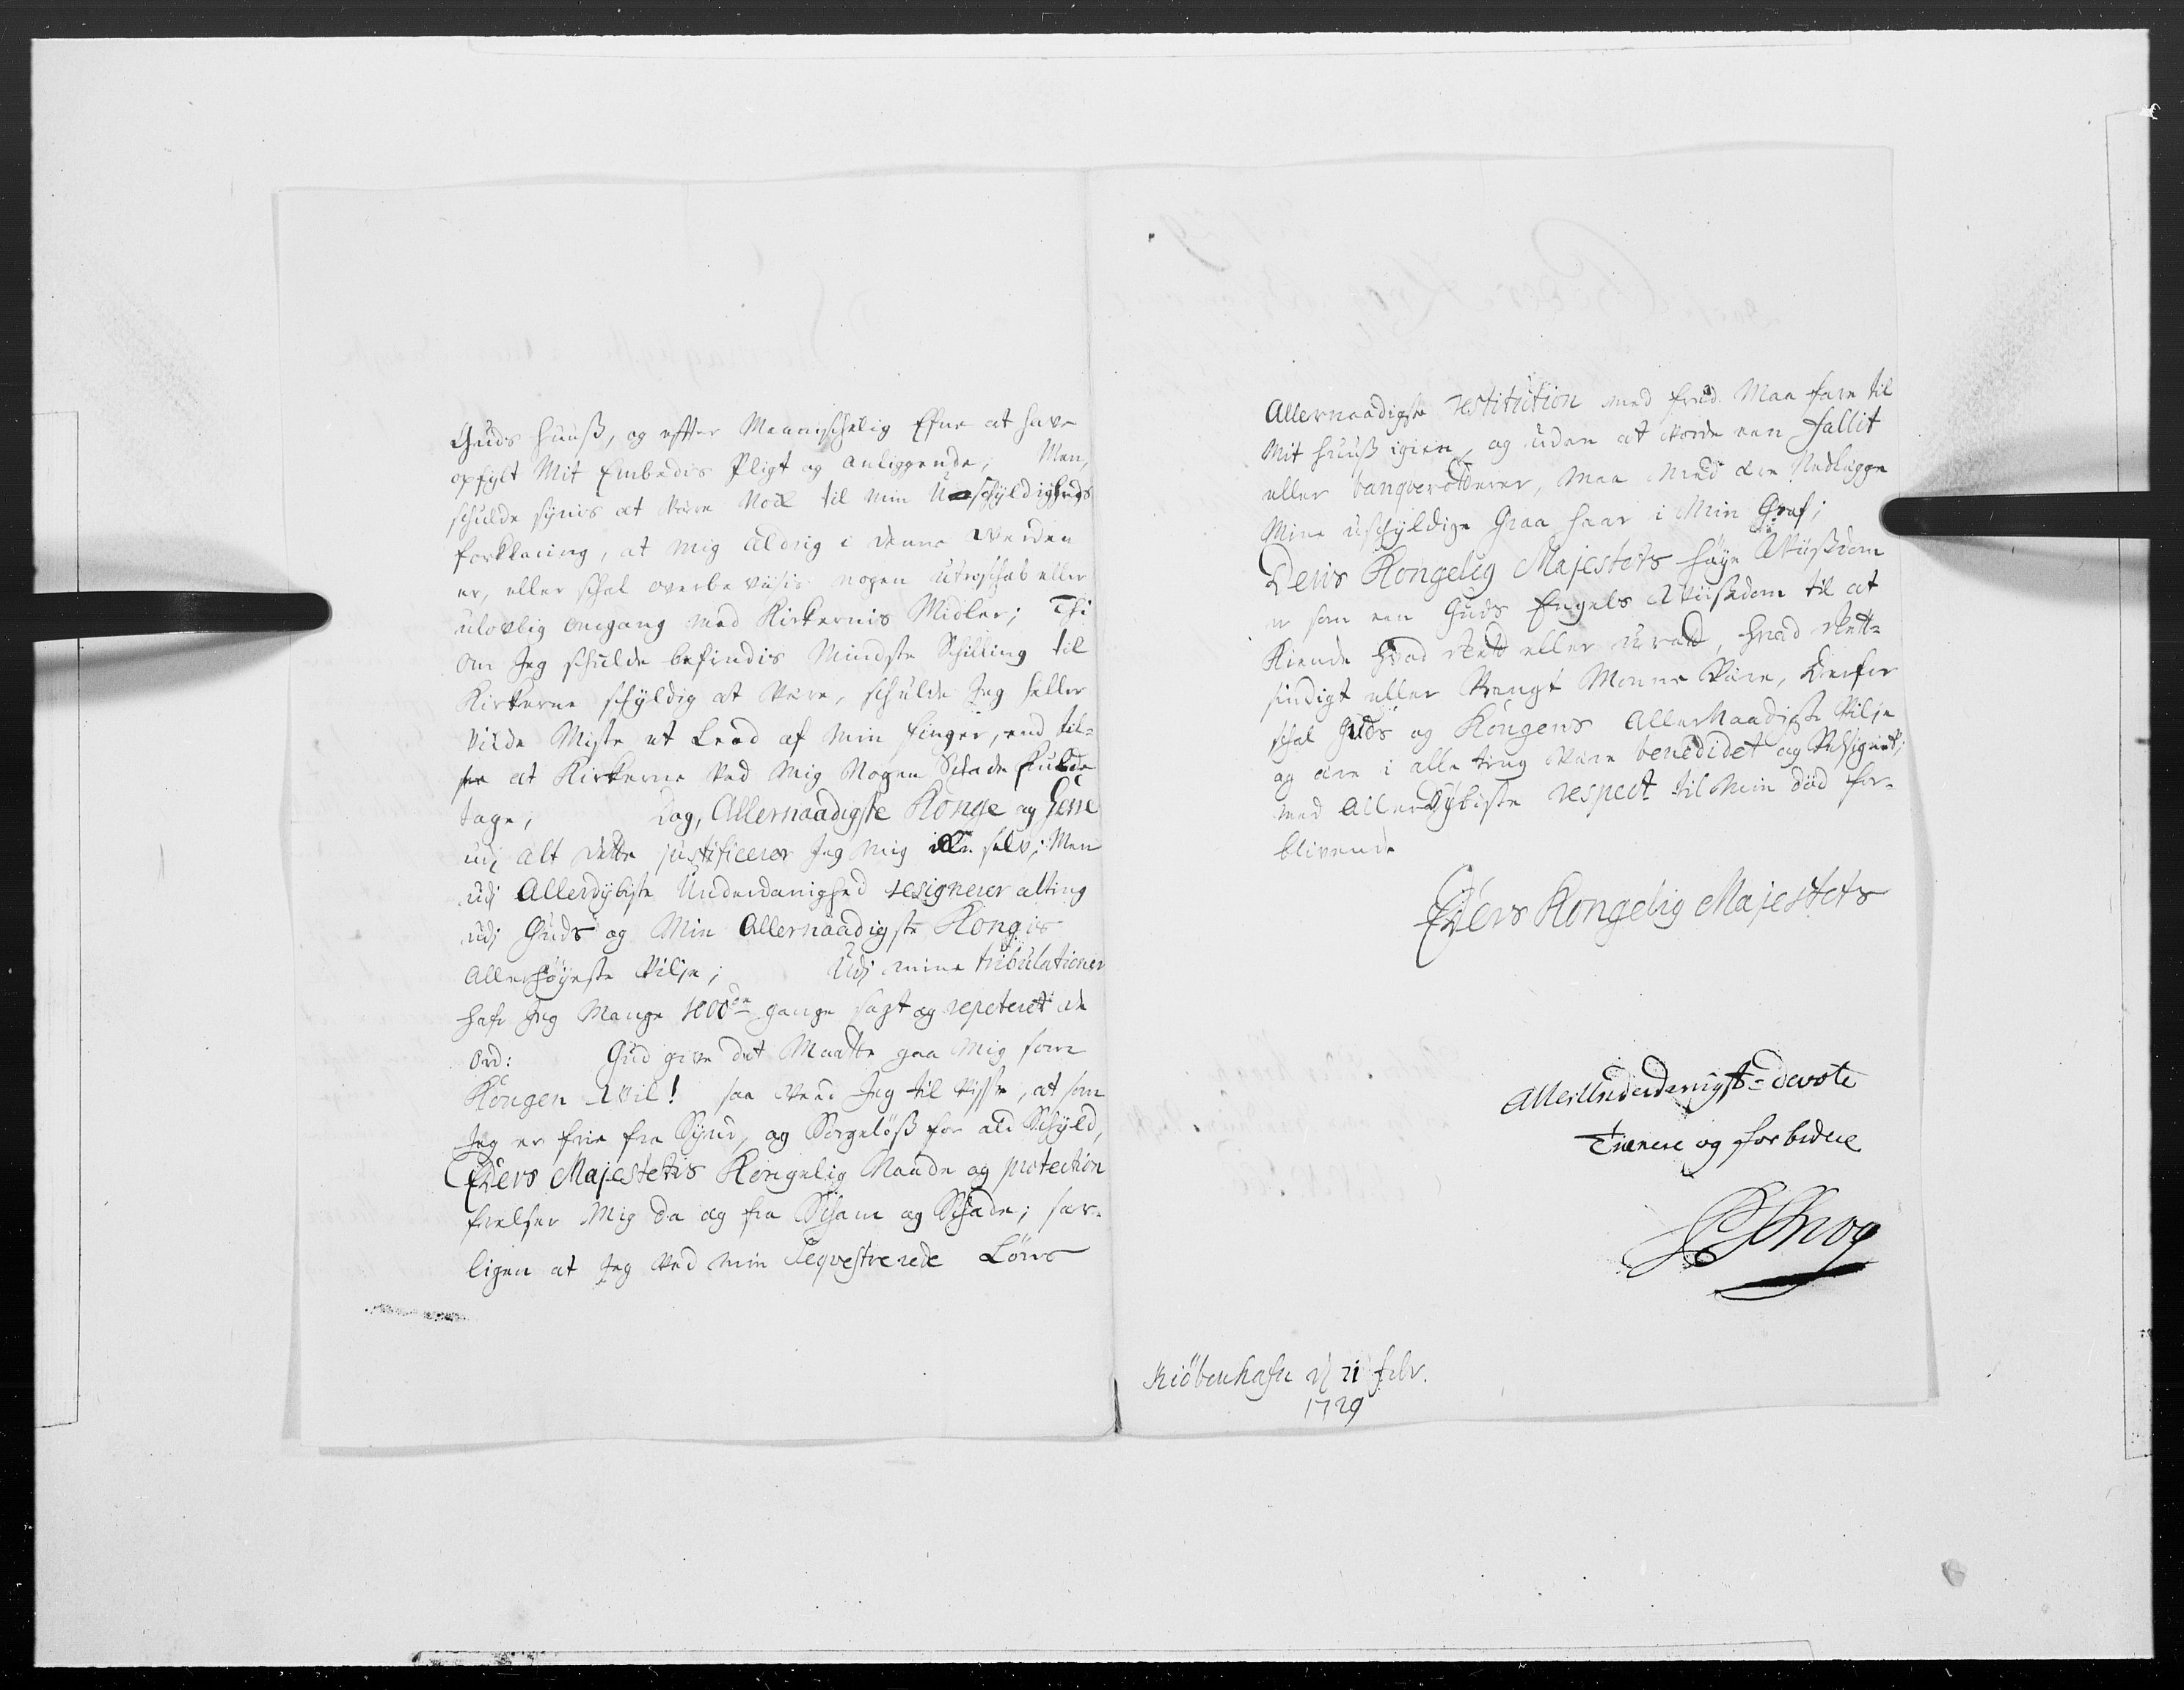 Guds Huuß, og effter Mennischelig Efne at have
opfylt Mit Embedis Pligt og anliggende; Men,
schulde synes at være Nock til min Uschyldigheds
forklaring, at mig aldrig i denne Verden
er, eller schal overbevises nogen utroschab eller
ulovlig omgang med Kirkernis Midler; Thi
om Jeg schulde befindis Mindste Schilling til
Kirkerne schyldig at være, schulde Jeg heller
vilde Miste et Leed af min finger, end til-
see at Kirkerne ved Mig Nogen Schade skulde
tage; Dog, Allernaadigste Konge og Herre
udj alt dette justificerer Jeg mig icke selv; Men
udj Allerdybiste Underdanighed resignerer alting
udj Guds og Min Allernaadigste Kongis
Allerhöyeste Vilje; Udj mine tribulationer
hafr Jeg Mange 1000de gange sagt og repeteret de
ord: Gud give det Maatte gaa Mig som
Kongen Wil! saa veed Jeg til visse, at som
Jeg er frie fra Synd, og Sorgelöß for ald Schyld,
Eders Majestetis Kongelig Naade og protection
frelser Mig da og fra Scham og Schade; sær-
ligen at Jeg ved min Seqvestrerede Löns
Allernaadigste restitution med fred Maa fare til
Mit Huuß igien, og uden at vorde een fallit
eller banqverotterer, maa med ære Nedlegge
Mine uschyldige Graa Haar i Min Graf;
Deris Kongelig Majestets höye Wiißdom
er som een Guds Engels Wiißdom til at
Kiende hvad rett eller urett, hvad rett-
sindigt eller Vrangt Monne være, Derfor
schal Guds og Kongens AllerNaadigste Vilje
og ære i alle ting være benedidet og Velsignet;
med Allerdybiste respect til Min död for-
blivende
Eders Kongelig Majestets
AllerUnderdanigst-devote
Tienere og forbidere
Krog
Kiöbenhafn d 21 febr.
1729